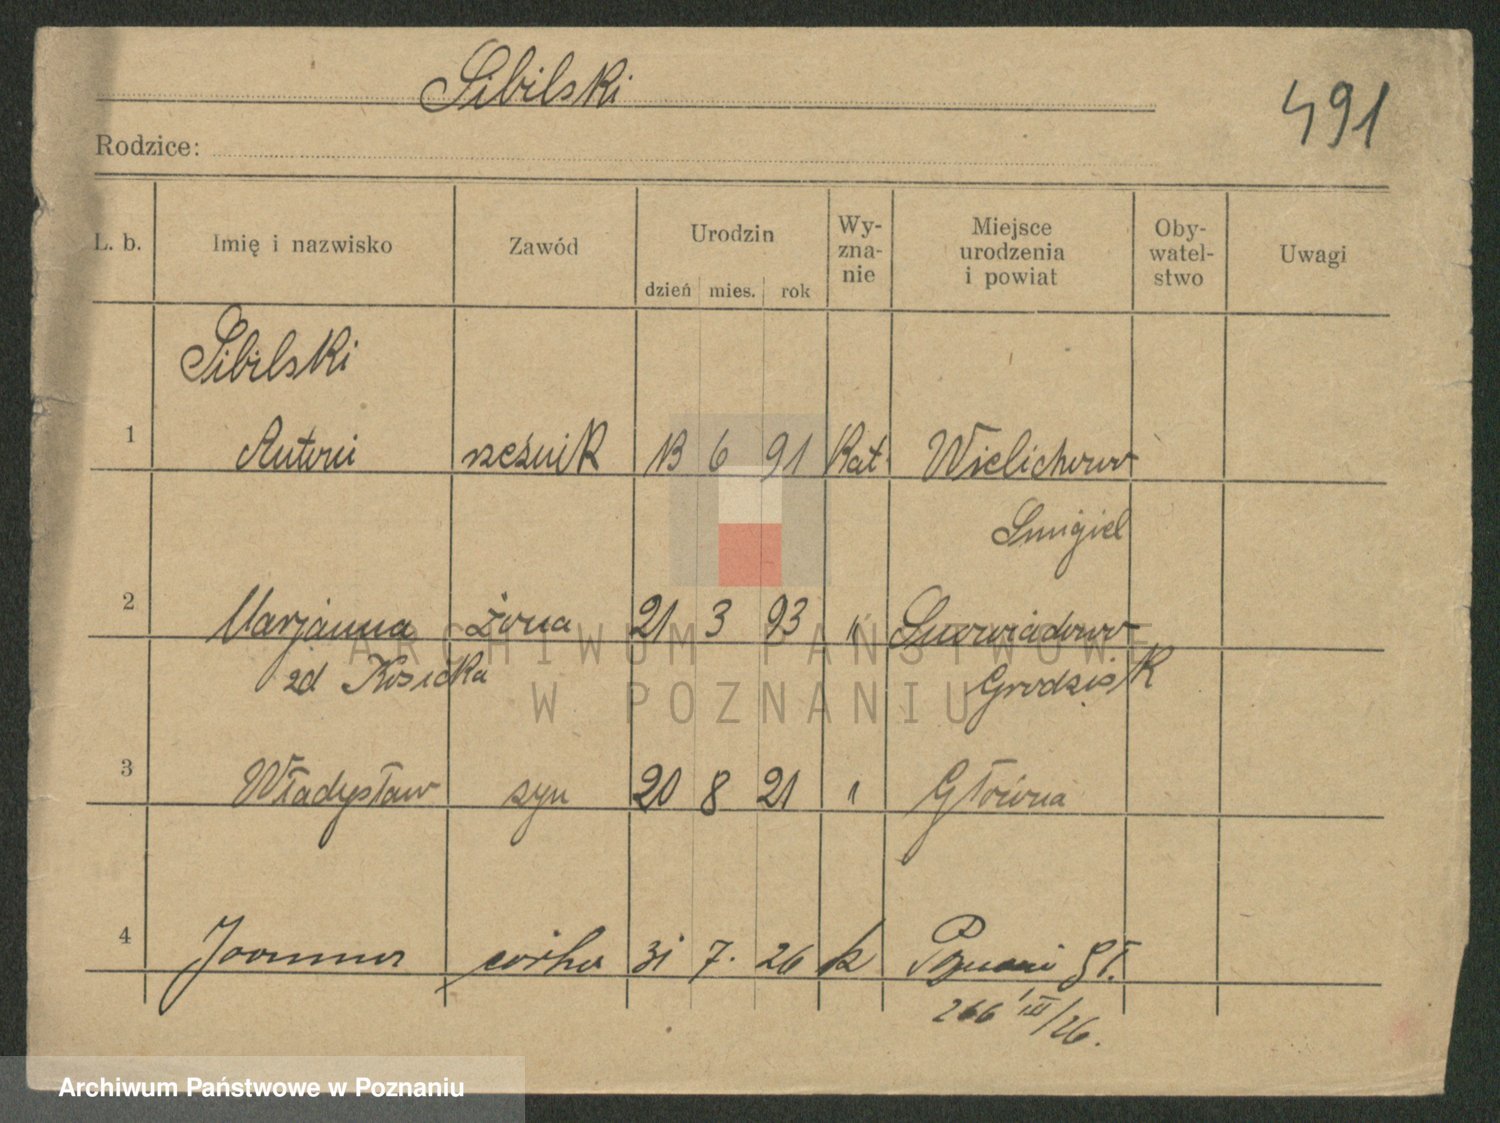 Sibilski
491
Rodzice:
L. b. Imię i nazwisko Zawód Urodzin Wy-zna-nie Miejsce urodzenia i powiat Oby-watel-stwo Uwagi
dzień mies. rok
Sibilski
1 Antoni rzeźnik 13 6 91 Kat. Wielichowo
Śmigiel
2 Marjanna żona 21 3 93 "
zd Kosicka Grodzisk
3 Władysław syn 20 8 21 " Główna
4 Joanna córka 31 7. 26 k Poznań Gł.
266 III/26.
ARCHIWUM PAŃSTWOWE
W POZNANIU
Archiwum Państwowe w Poznaniu